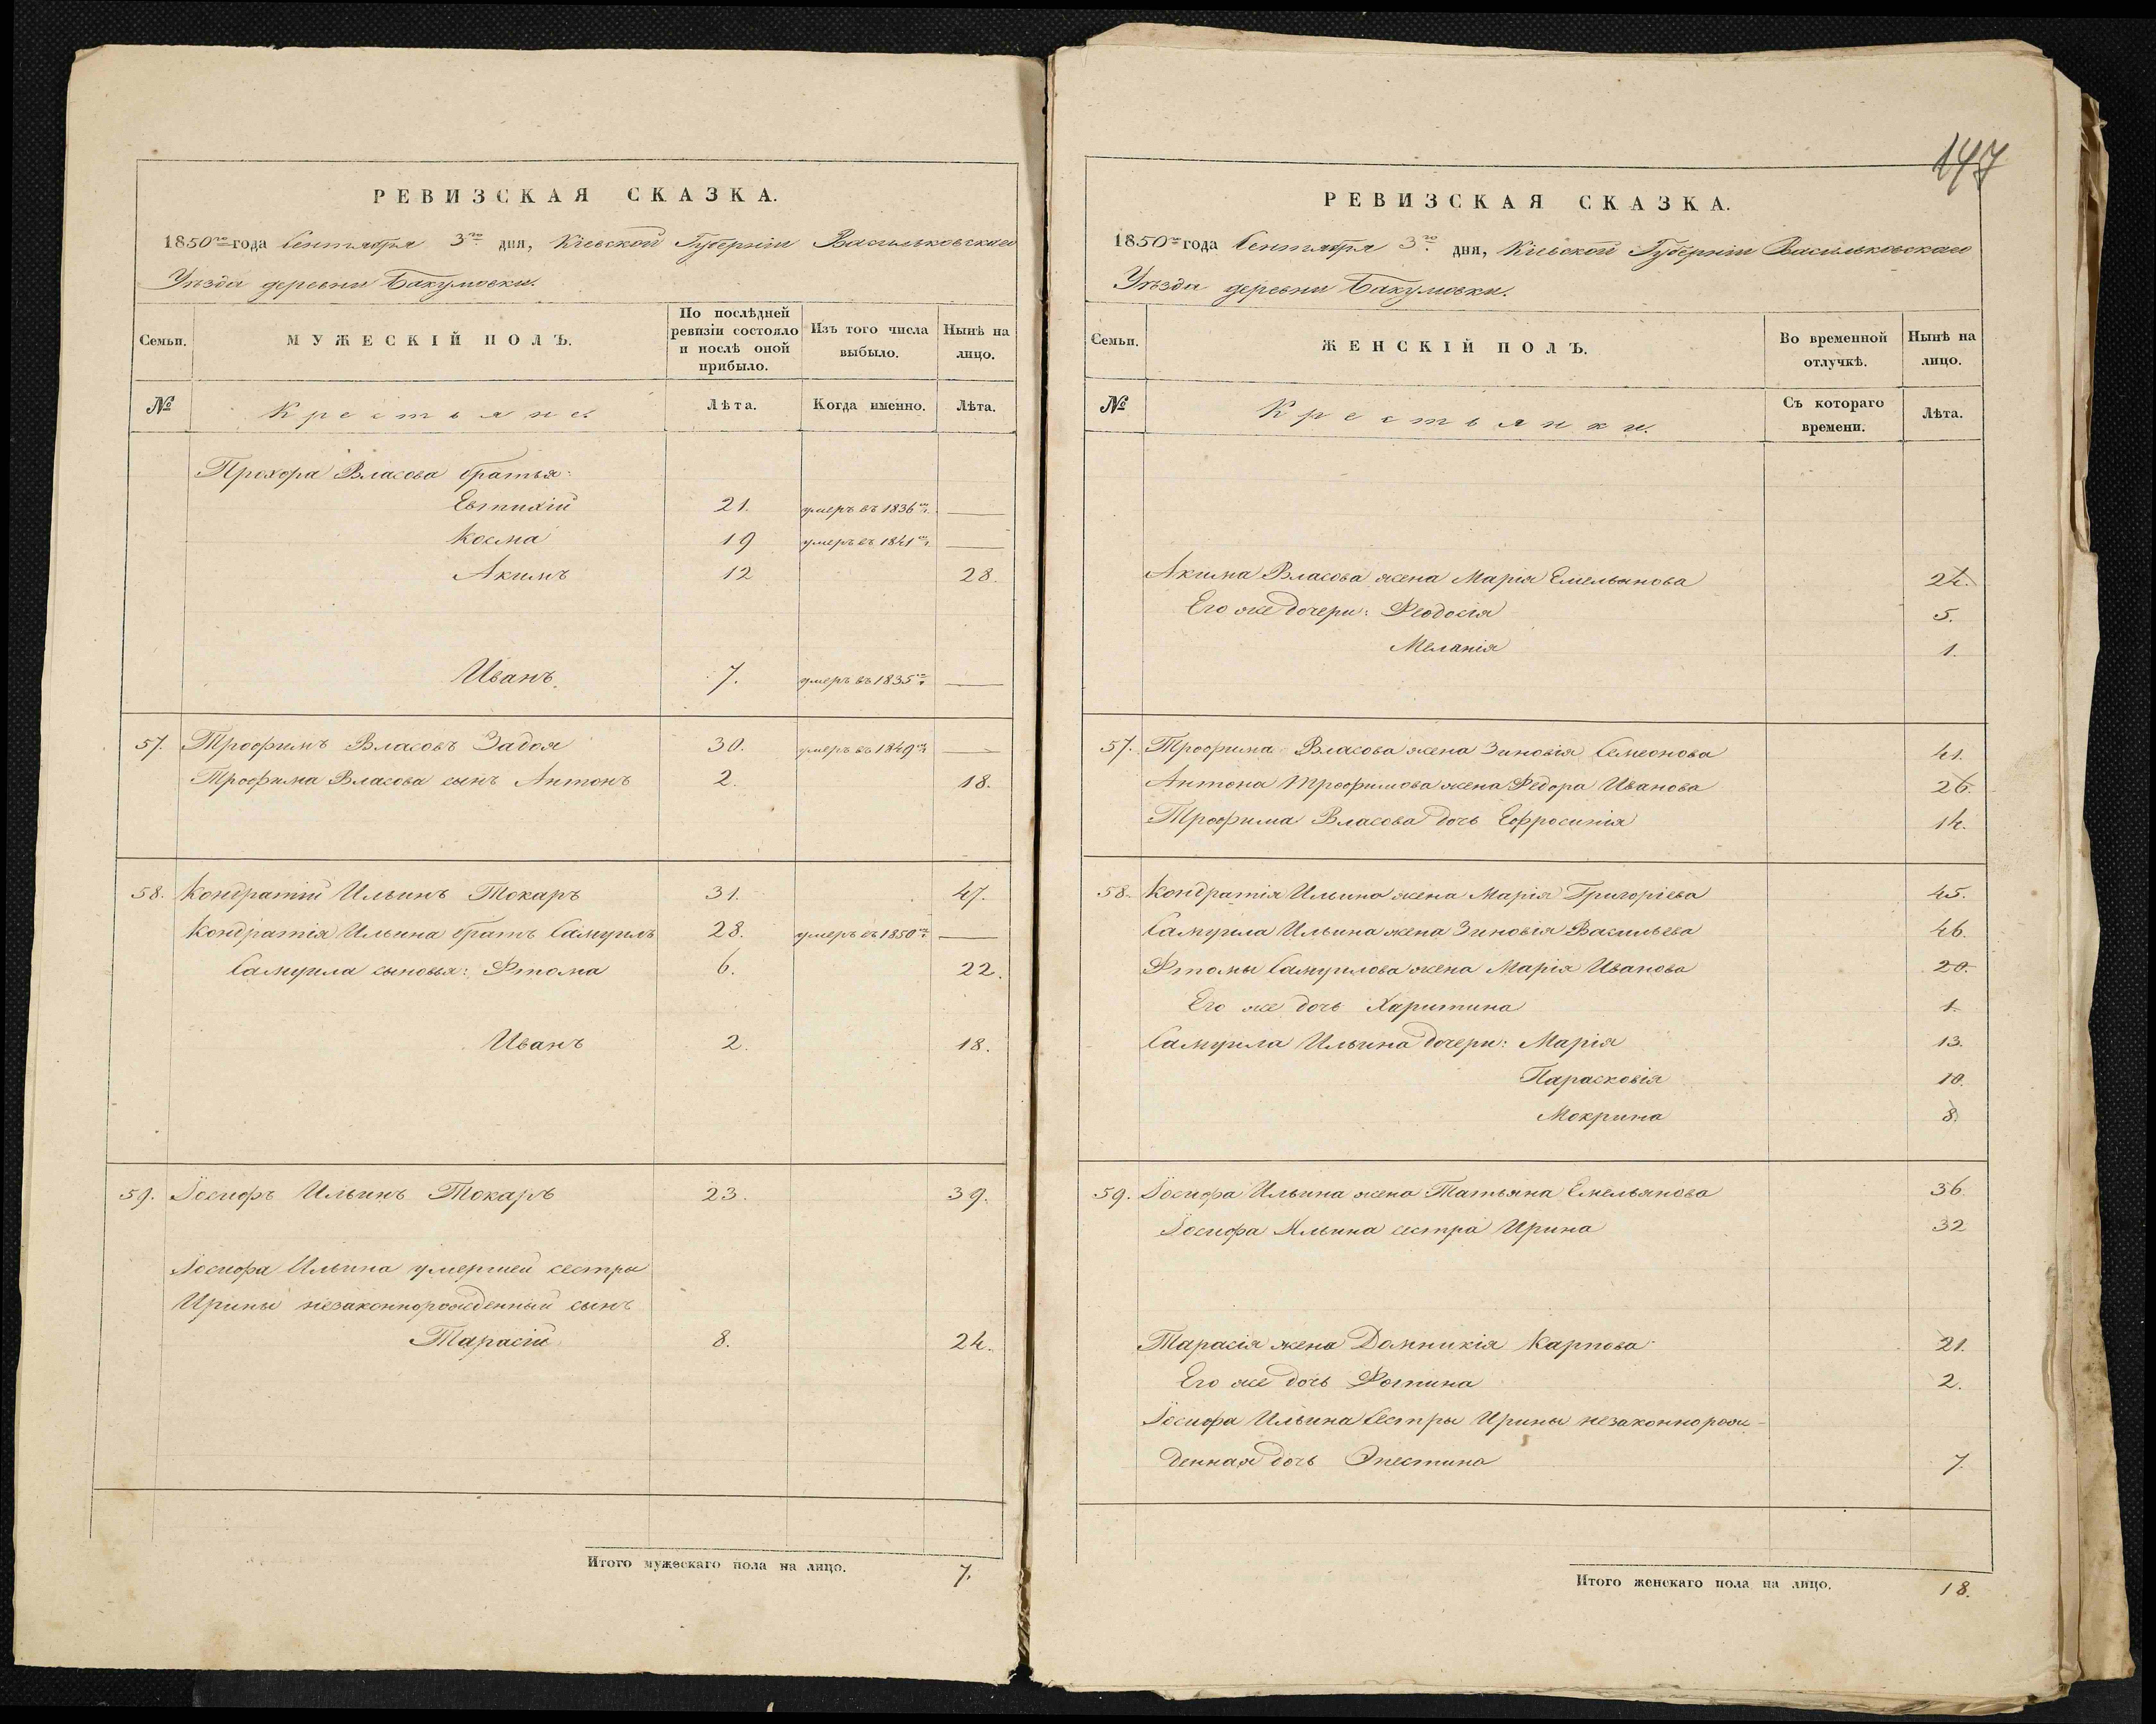 РЕВИЗСКАЯ СКАЗКА.
1850го года Сентября 3го дня, Кіевской Губерніи Васильковскаго
Уѣзда деревни Бакумовки.
Семьи.
МУЖЕСКІЙ ПОЛЪ.
По послѣдней ревизіи состояло и послѣ оной прибыло.
Изъ того числа выбыло.
Нынѣ на лицо.
№ Крестьяне. Лѣта. Когда именно. Лѣта.
Прохора Власова братья:
Евтихій 21. умеръ въ 1836мъ г. —
Косма 19 умеръ въ 1841мъ г. —
Акимъ 12 28.
Иванъ. 7. умеръ въ 1835мъ г. —
57. Трофимъ Власовъ Задоя 30. умеръ въ 1849мъ г. —
Трофима Власова сынъ Антонъ 2. 18.
58. Кондратій Ильинъ Токаръ 31. 47.
Кондратія Ильина братъ Самуилъ 28. умеръ въ 1850мъ г. —
Самуила сыновья: Ѳтома 6. 22.
Иванъ 2. 18.
59. Іосифъ Ильинъ Токаръ 23. 39.
Іосифа Ильина умершей сестры
Ирины незаконнорожденный сынъ
Тарасій 8. 24.
Итого мужескаго пола на лицо. 7.
147
РЕВИЗСКАЯ СКАЗКА.
1850го года Сентября 3го дня, Кіевской Губерніи Васильковскаго
Уѣзда деревни Бакумовки.
Семьи.
ЖЕНСКІЙ ПОЛЪ.
Во временной отлучкѣ.
Нынѣ на лицо.
№ Крестьянки. Съ котораго времени. Лѣта.
Акима Власова жена Марія Емельянова 24.
Его же дочери: Ѳеодосія 5.
Меланія 1.
57. Трофима Власова жена Зиновія Семеонова 41.
Антона Трофимова жена Ѳедора Иванова 26.
Трофима Власова дочь Ефросинія 14.
58. Кондратія Ильина жена Марія Григоріева 45.
Самуила Ильина жена Зиновія Васильева 46.
Ѳтомы Самуилова жена Марія Иванова 20.
Его же дочь Харитина 1.
Самуила Ильина дочери: Марія 13.
Парасковія 10.
Мокрина 8.
59. Іосифа Ильина жена Татьяна Емельянова 36.
Іосифа Ильина сестра Ирина 32
Тарасія жена Домникія Карпова 21.
Его же дочь Ѳотина 2.
Іосифа Ильина Сестры Ирины незаконнорож-
денная дочь 7.
Итого женскаго пола на лицо. 18.